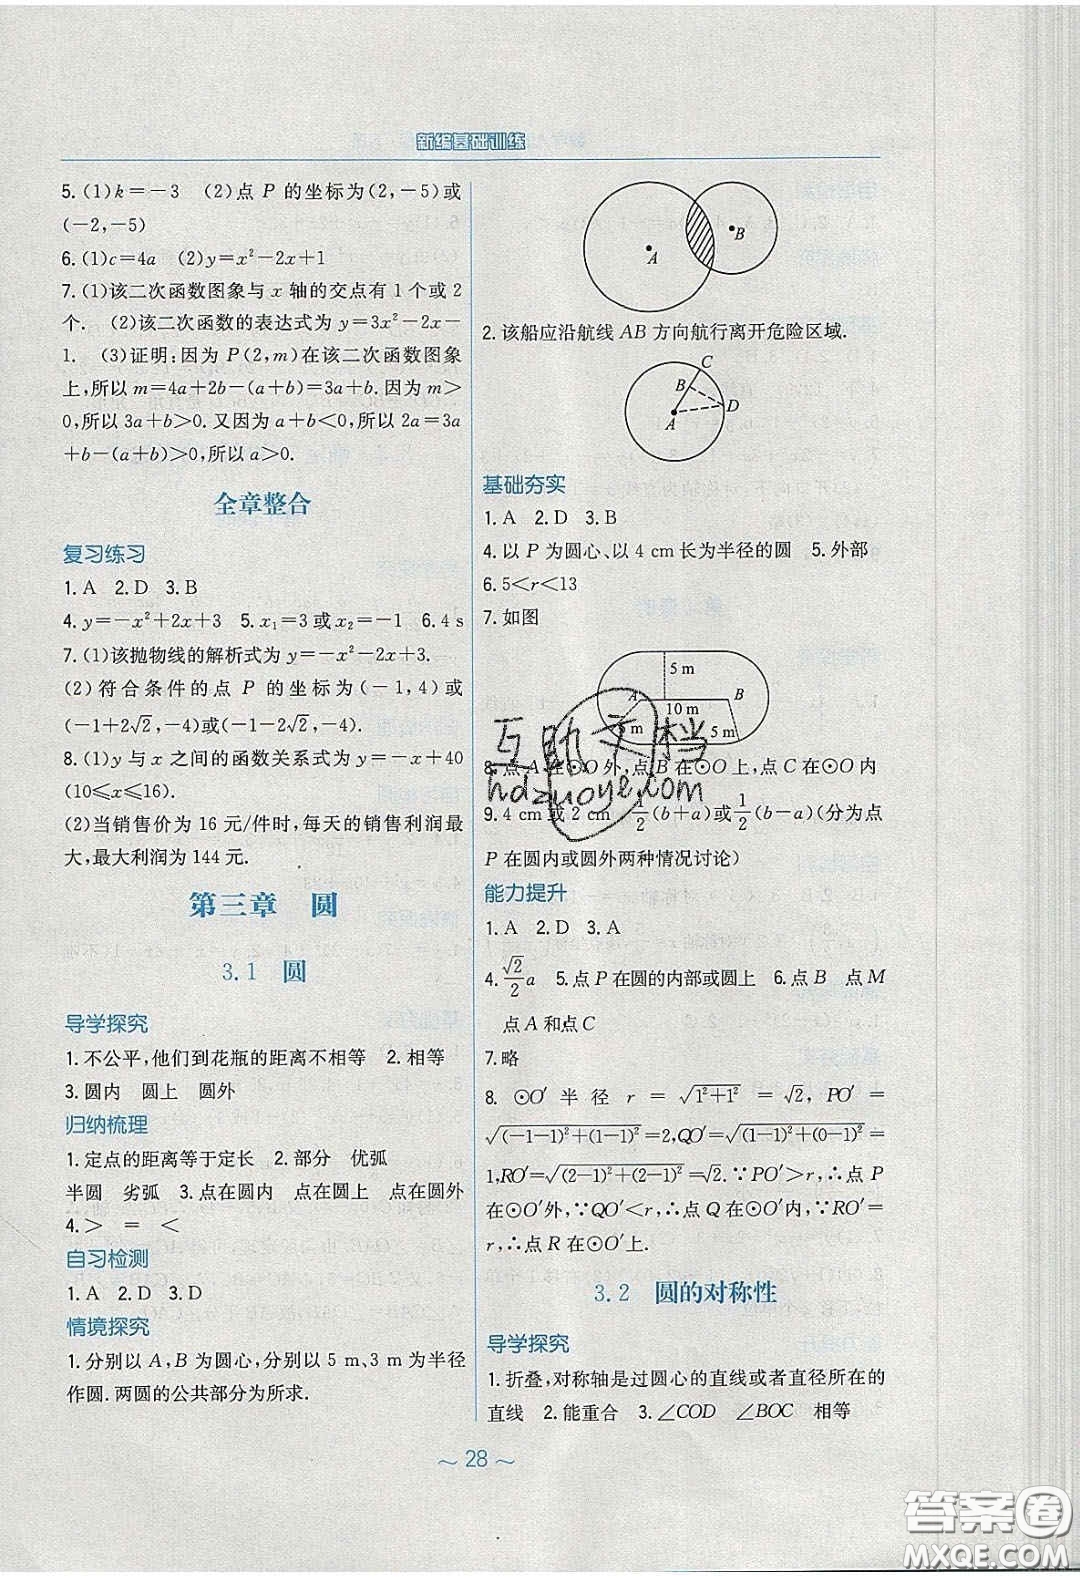 新编基础训练
5. (1)k=-3 (2)点 P 的坐标为(2,-5)或
(-2,-5)
6. (1)c=4a (2)y=x²-2x+1
7. (1)该二次函数图象与 x 轴的交点有 1 个或 2
个. (2)该二次函数的表达式为 y=3x²-2x-
1. (3)证明:因为 P(2,m)在该二次函数图象
上,所以 m=4a+2b-(a+b)=3a+b.因为 m>
0,所以 3a+b>0.又因为 a+b<0,所以 2a=3a
+b-(a+b)>0,所以 a>0.
全章整合
复习练习
1. A 2. D 3. B
4. y=-x²+2x+3 5. x₁=3 或 x₂=-1 6. 4 s
7. (1)该抛物线的解析式为 y=-x²-2x+3.
(2)符合条件的点 P 的坐标为(-1,4)或
(-1+2√2,-4)或(-1-2√2,-4).
8. (1)y 与 x 之间的函数关系式为 y=-x+40
(10≤x≤16).
(2)当销售价为 16 元/件时,每天的销售利润最
大,最大利润为 144 元.
第三章 圆
3.1 圆
导学探究
1. 不公平,他们到花瓶的距离不相等 2. 相等
3. 圆内 圆上 圆外
归纳梳理
1. 定点的距离等于定长 2. 部分 优弧
半圆 劣弧 3. 点在圆内 点在圆上 点在圆外
4. > = <
自习检测
1. A 2. D 3. D
情境探究
1. 分别以 A,B 为圆心,分别以 5 m、3 m 为半径
作圆.两圆的公共部分为所求.
A
B
2. 该船应沿航线 AB 方向航行离开危险区域.
C
B
D
A
基础夯实
1. A 2. D 3. B
4. 以 P 为圆心、以 4 cm 长为半径的圆 5. 外部
6. 5<r<13
7. 如图
5 m
A B
10 m
m 5 m
8. 点 A 在⊙O 外,点 B 在⊙O 上,点 C 在⊙O 内
9. 4 cm 或 2 cm 1/2(b+a)或1/2(b-a)(分为点
P 在圆内或圆外两种情况讨论)
能力提升
1. A 2. D 3. A
4. √2/2 a 5. 点 P 在圆的内部或圆上 6. 点 B 点 M
点 A 和点 C
7. 略
8. ⊙O′半径 r=√(1²+1²)=√2,PO′=
√((-1-1)²+(1-1)²)=2,QO′=√((1-1)²+(0-1)²)=
1,RO′=√((2-1)²+(2-1)²)=√2.∵PO′>r,∴点 P
在⊙O′外,∵QO′<r,∴点 Q 在⊙O′内,∵RO′=
r,∴点 R 在⊙O′上.
3.2 圆的对称性
导学探究
1. 折叠,对称轴是过圆心的直线或者直径所在的
直线 2. 能重合 3. ∠COD ∠BOC 相等
～ 28 ～
互助文档
hdzuoye.com
答案圈
MXQE.COM